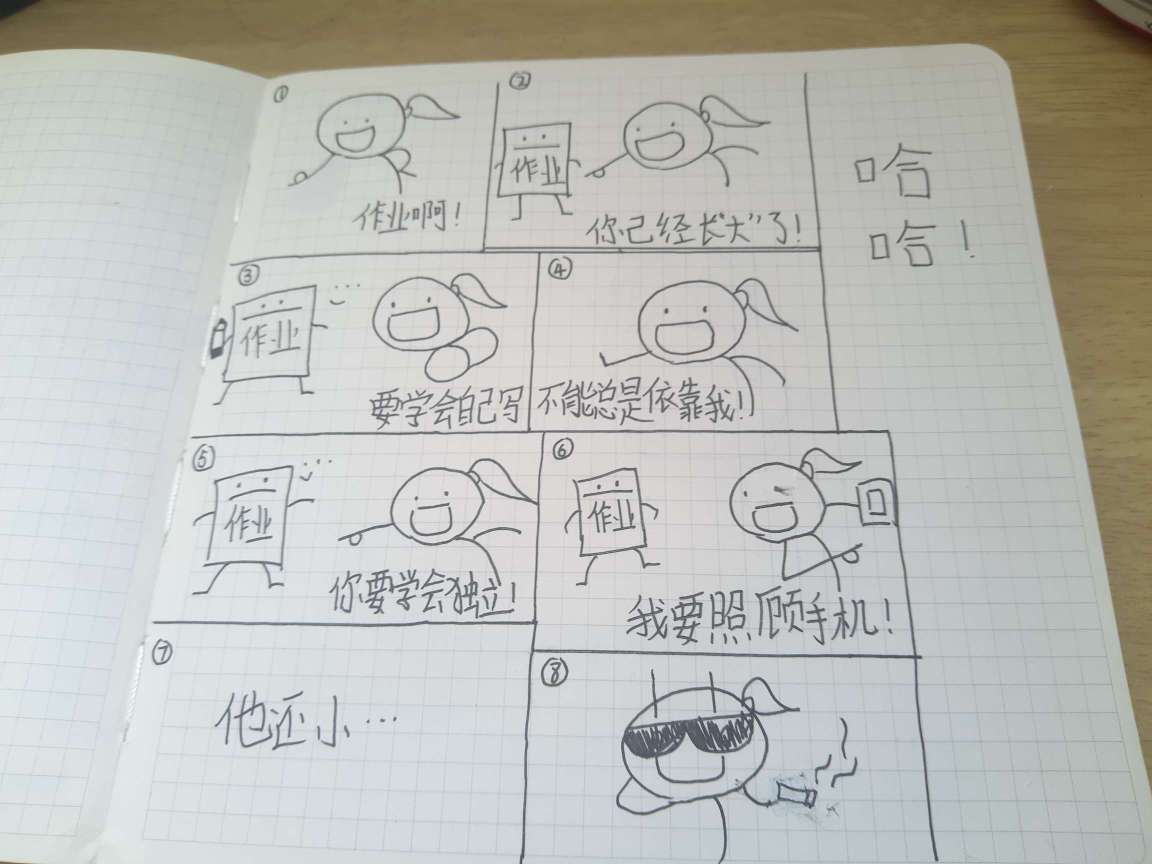 ①
作业啊!
②
作业
你已经长“大”了!
③
作业
要学会自己写
④
不能总是依靠我!
⑤
作业
你要学会独立!
⑥
作业
我要照顾手机!
⑦
他还小…
⑧
哈
哈!